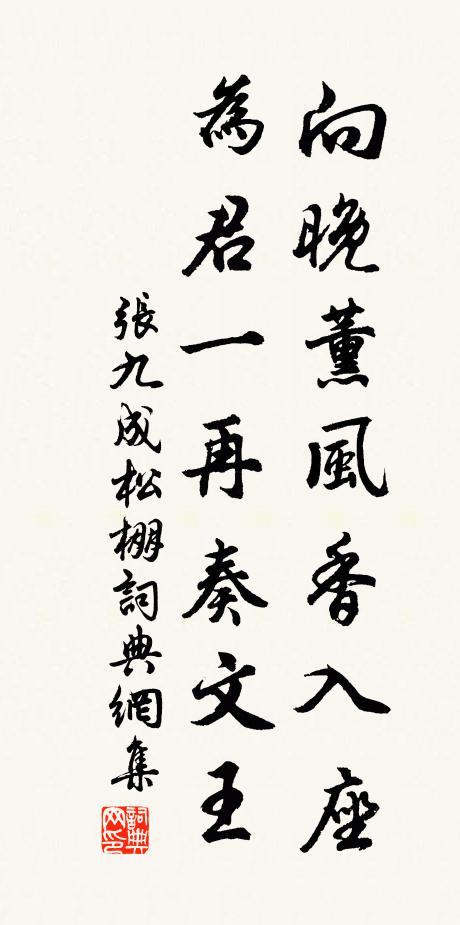 向晚薰風香入座
為君一再奏文王
張九成松棚詞典網集
詞典網印